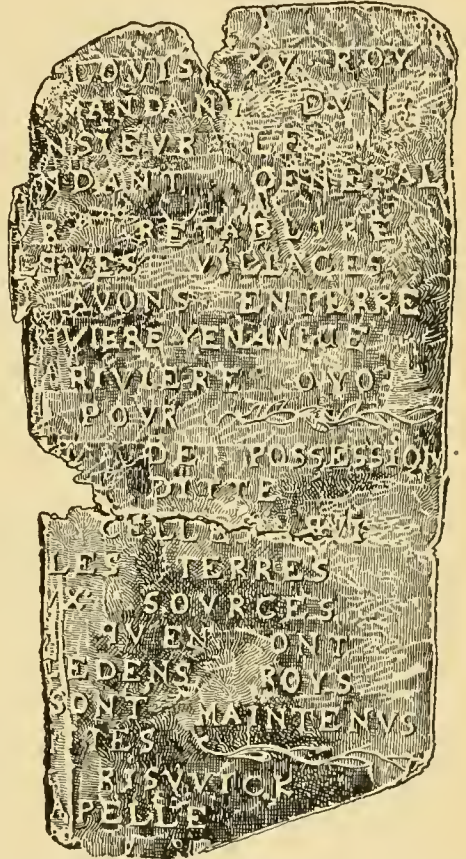 LOVIS XV ROY
MANDANT DVN
NSIEVR LE M
NDANT GENERAL
R RETABLIRE
QVES VILLAGES
AVONS ENTERRE
RIVIERE OYO
POVR
DE POSSESSION
DITTE
CELLE QVI
LES TERRES
VX SOVRCES
QVEN ONT
CEDENS ROYS
SONT MAINTENVS
TES
RISVVICK
APELLE